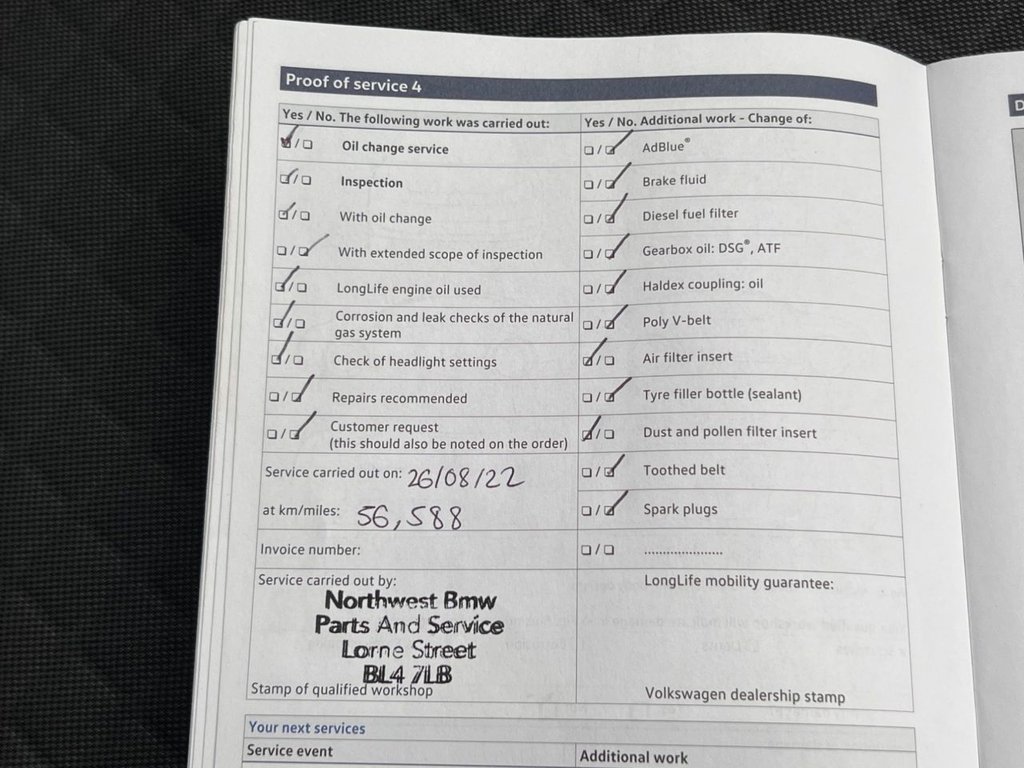 Proof of service 4
Yes / No. The following work was carried out:
Oil change service
Inspection
With oil change
With extended scope of inspection
LongLife engine oil used
Corrosion and leak checks of the natural
gas system
Check of headlight settings
Repairs recommended
Customer request
(this should also be noted on the order)
Service carried out on: 26/08/22
at km/miles: 56,588
Invoice number:
Service carried out by:
Northwest Bmw
Parts And Service
Lorne Street
BL4 7LB
Stamp of qualified workshop
Yes / No. Additional work - Change of:
AdBlue®
Brake fluid
Diesel fuel filter
Gearbox oil: DSG®, ATF
Haldex coupling: oil
Poly V-belt
Air filter insert
Tyre filler bottle (sealant)
Dust and pollen filter insert
Toothed belt
Spark plugs
......................
LongLife mobility guarantee:
Volkswagen dealership stamp
Your next services
Service event
Additional work
D